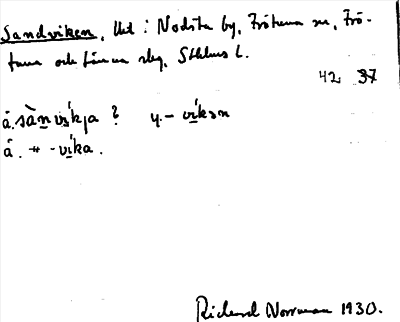 Sandviken, Ut i Nodsta by, Frötuna sn, Frö-
tuna och Länna slg, Sthlms l.
42 37
å. sàn vi̱kja ? y. - vi̱kən
å. # - vi̱ka.
Rickard Norrman 1930.